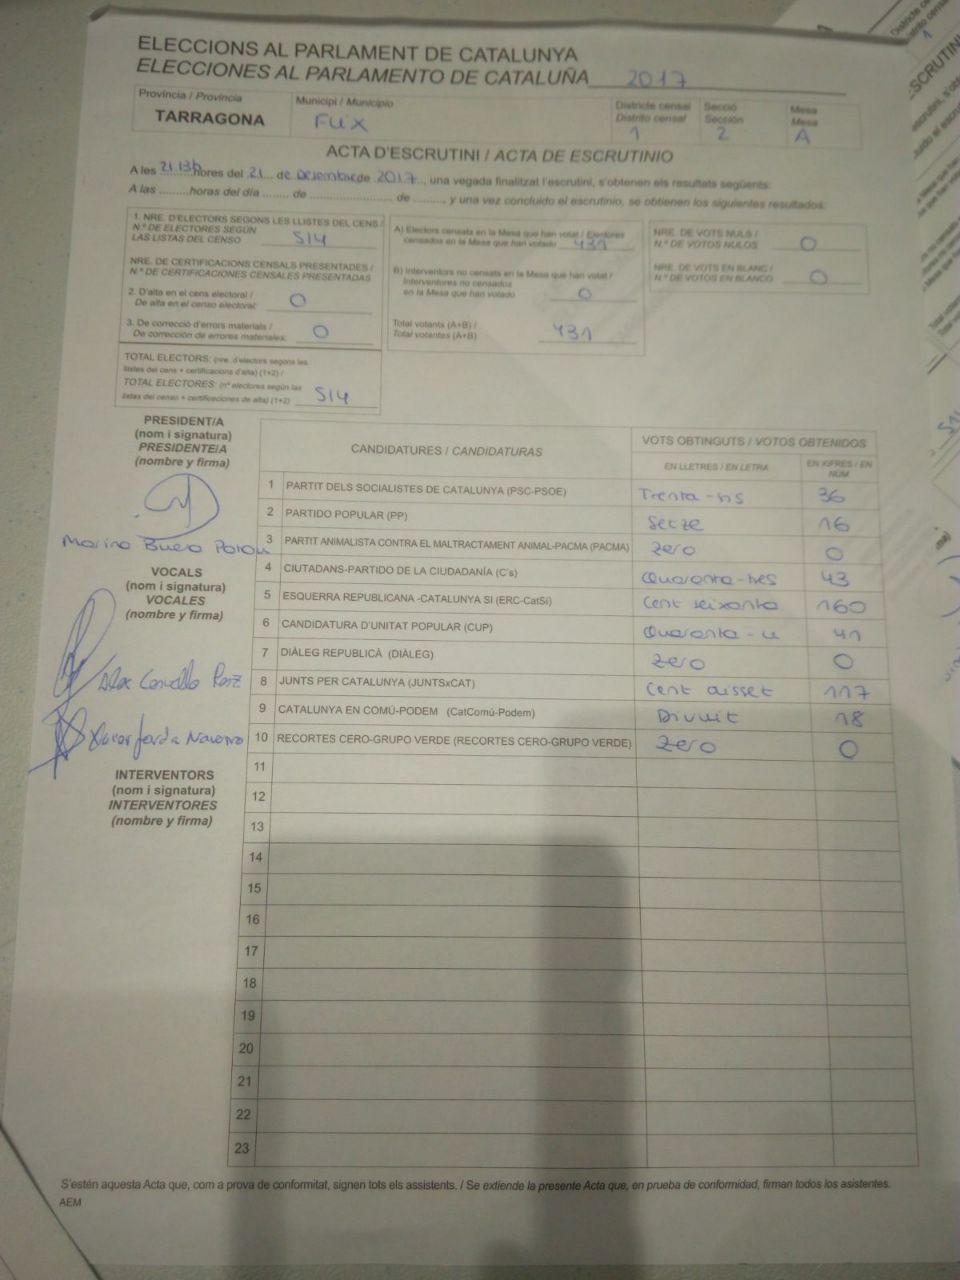 ELECCIONS AL PARLAMENT DE CATALUNYA
ELECCIONES AL PARLAMENTO DE CATALUÑA 2017
Província / Provincia
TARRAGONA
Municipi / Municipio
FLIX
Districte censal
Distrito censal
1
Secció
Sección
2
Mesa
Mesa
A
ACTA D'ESCRUTINI / ACTA DE ESCRUTINIO
A les 21.13h hores del 21 de Desembre de 2017, una vegada finalitzat l'escrutini, s'obtenen els resultats següents:
A las .........horas del día ....... de ........................ de ........, y una vez concluido el escrutinio, se obtienen los siguientes resultados:
1. NRE. D'ELECTORS SEGONS LES LLISTES DEL CENS /
N.º DE ELECTORES SEGÚN
LAS LISTAS DEL CENSO 514
NRE. DE CERTIFICACIONS CENSALS PRESENTADES /
N.º DE CERTIFICACIONES CENSALES PRESENTADAS
2. D'alta en el cens electoral /
De alta en el censo electoral: 0
3. De correcció d'errors materials /
De corrección de errores materiales: 0
TOTAL ELECTORS: (nre. d'electors segons les
llistes del cens + certificacions d'alta) (1+2) /
TOTAL ELECTORES: (nº electores según las
listas del censo + certificaciones de alta) (1+2) 514
A) Electors censats en la Mesa que han votat / Electores
censados en la Mesa que han votado 431
B) Interventors no censats en la Mesa que han votat /
Interventores no censados
en la Mesa que han votado 0
Total votants (A+B) /
Total votantes (A+B) 431
NRE. DE VOTS NULS /
N.º DE VOTOS NULOS 0
NRE. DE VOTS EN BLANC /
N.º DE VOTOS EN BLANCO 0
PRESIDENT/A
(nom i signatura)
PRESIDENTE/A
(nombre y firma)
VOCALS
(nom i signatura)
VOCALES
(nombre y firma)
INTERVENTORS
(nom i signatura)
INTERVENTORES
(nombre y firma)
CANDIDATURES / CANDIDATURAS
VOTS OBTINGUTS / VOTOS OBTENIDOS
EN LLETRES / EN LETRA
EN XIFRES / EN NÚM
1 PARTIT DELS SOCIALISTES DE CATALUNYA (PSC-PSOE) Trenta-sis 36
2 PARTIDO POPULAR (PP) Setze 16
3 PARTIT ANIMALISTA CONTRA EL MALTRACTAMENT ANIMAL-PACMA (PACMA) Zero 0
4 CIUTADANS-PARTIDO DE LA CIUDADANÍA (C's) Quaranta-tres 43
5 ESQUERRA REPUBLICANA -CATALUNYA SI (ERC-CatSí) Cent seixanta 160
6 CANDIDATURA D'UNITAT POPULAR (CUP) Quaranta-u 41
7 DIÀLEG REPUBLICÀ (DIÀLEG) Zero 0
8 JUNTS PER CATALUNYA (JUNTSxCAT) Cent disset 117
9 CATALUNYA EN COMÚ-PODEM (CatComú-Podem) Divuit 18
10 RECORTES CERO-GRUPO VERDE (RECORTES CERO-GRUPO VERDE) Zero 0
11
12
13
14
15
16
17
18
19
20
21
22
23
S'estén aquesta Acta que, com a prova de conformitat, signen tots els assistents. / Se extiende la presente Acta que, en prueba de conformidad, firman todos los asistentes.
AEM